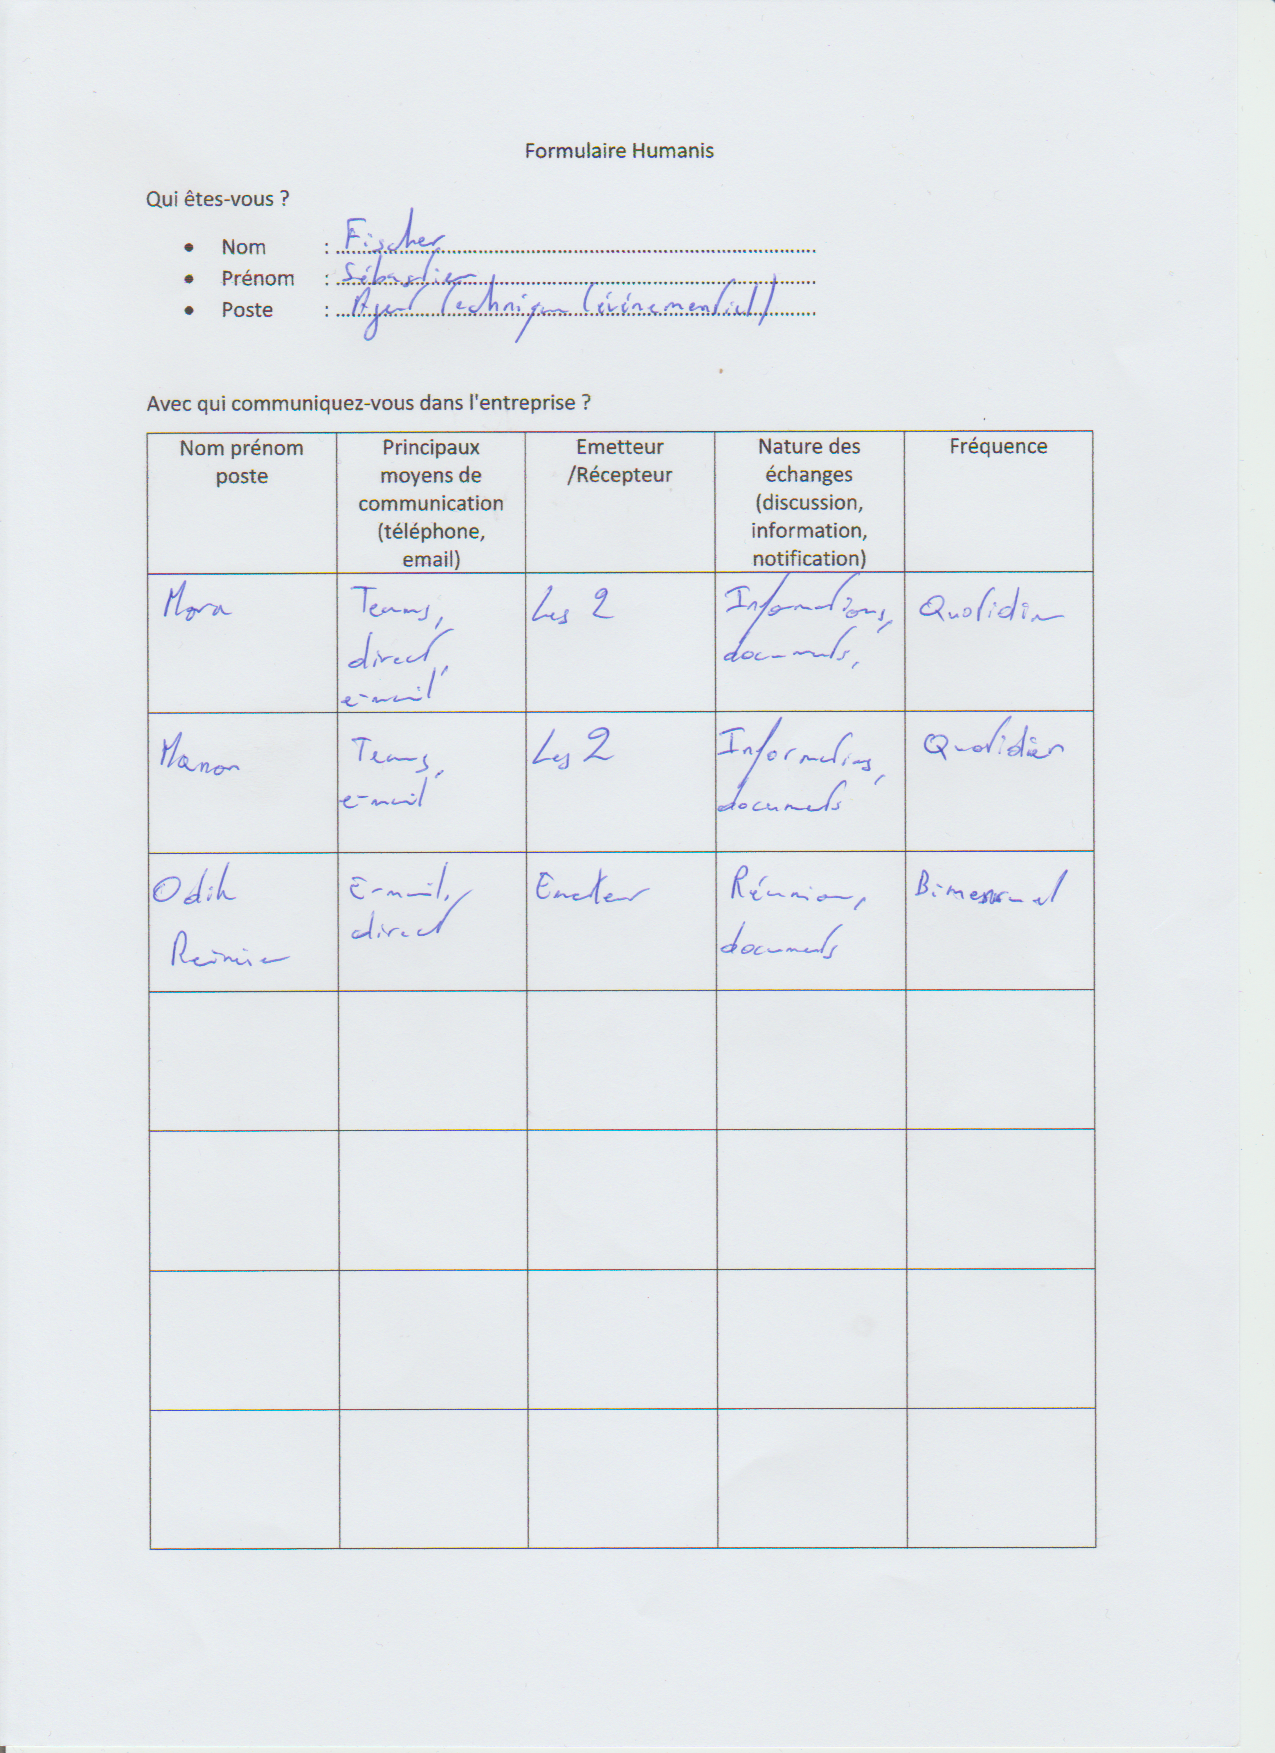 Formulaire Humanis
Qui êtes-vous ?
• Nom : Fischer
• Prénom : Sébastien
• Poste : Agent Technique (événementiel)
Avec qui communiquez-vous dans l'entreprise ?
Nom prénom poste
Principaux moyens de communication (téléphone, email)
Emetteur /Récepteur
Nature des échanges (discussion, information, notification)
Fréquence
Mora
Teams,
direct,
e-mail
Les 2
Informations,
documents,
Quotidien
Manon
Teams,
e-mail
Les 2
Informations,
documents
Quotidien
Odile
E-mail,
direct
Emetteur
Réunion,
documents
Bimensuel